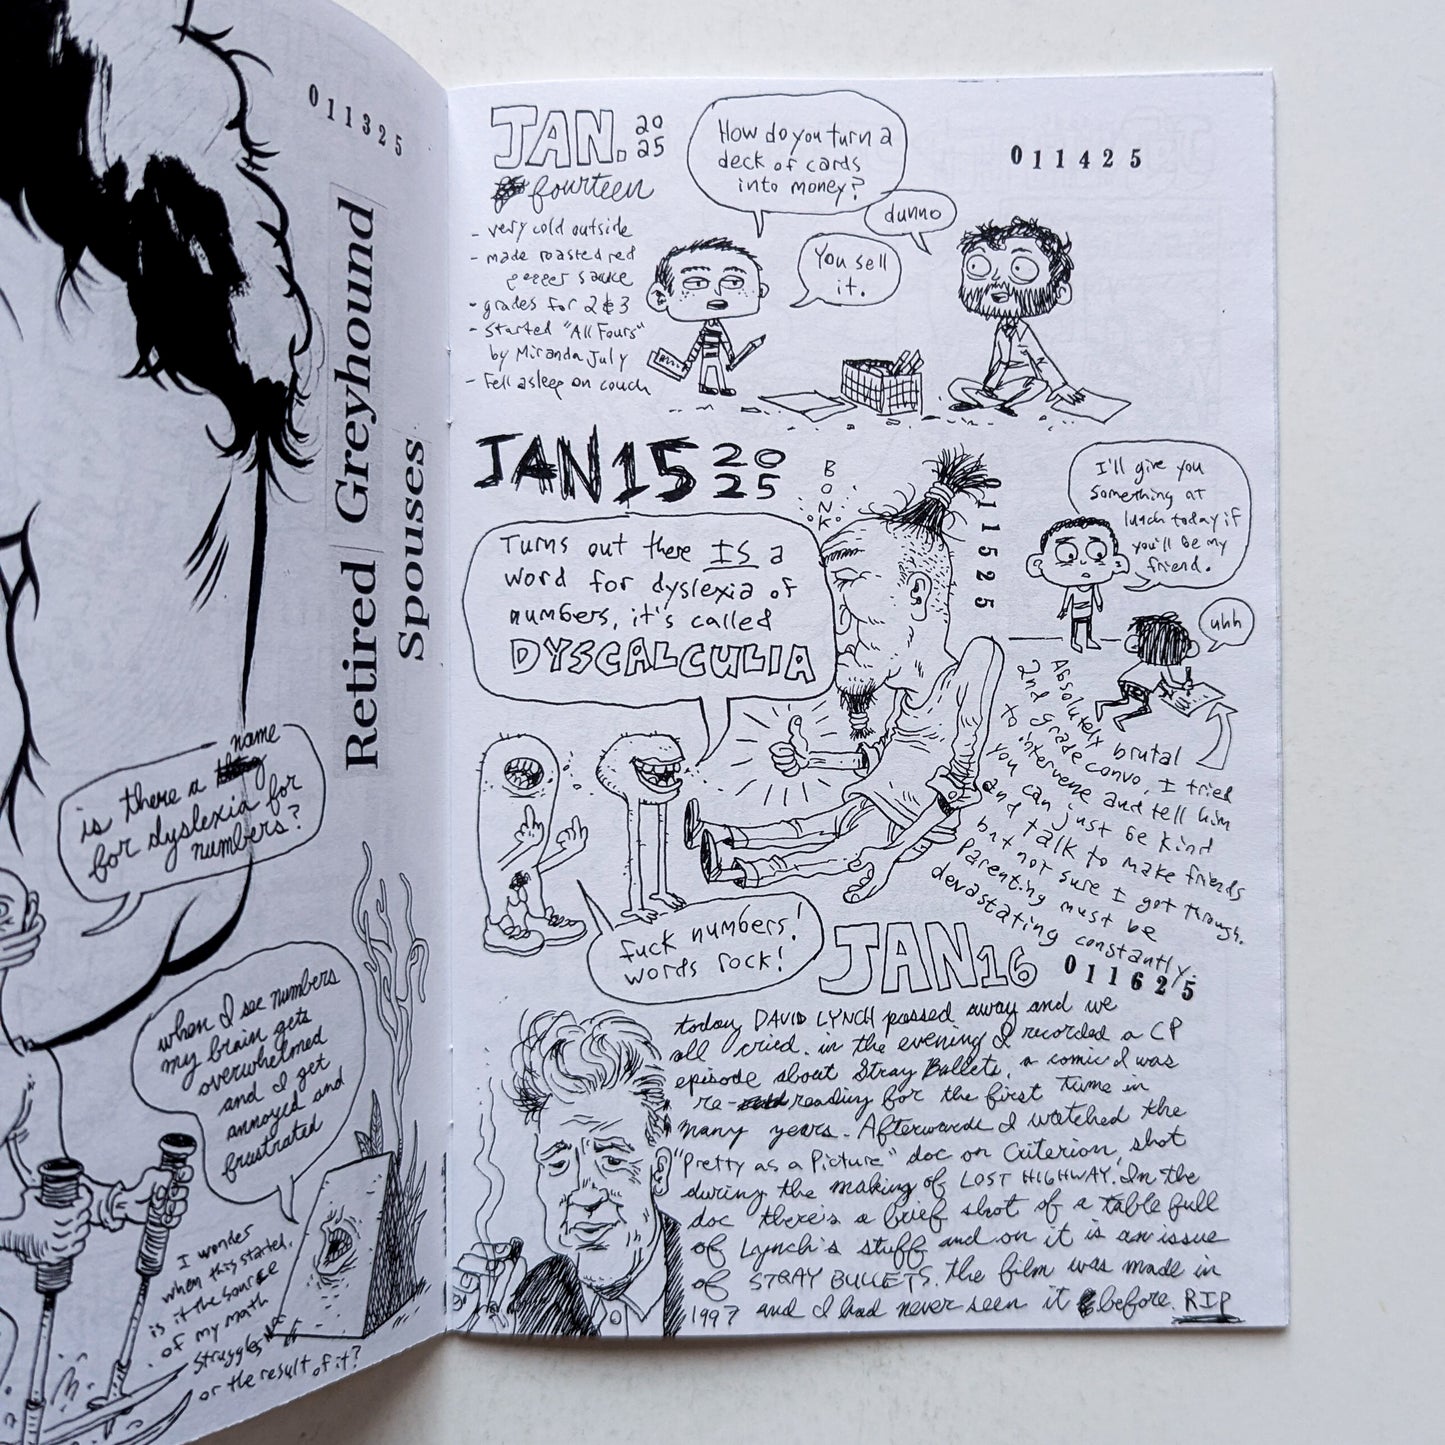 011325
Retired Greyhound
Spouses
name
is there a thing
for dyslexia for
numbers?
when I see numbers
my brain gets
overwhelmed
and I get
annoyed and
frustrated
I wonder
when this started,
is it the source
of my math
struggles
or the result of it?
JAN. 2025
fourteen
- very cold outside
- made roasted red
pepper sauce
- grades for 2 & 3
- started "All Fours"
by Miranda July
- fell asleep on couch
How do you turn a
deck of cards
into money?
dunno
You sell
it.
011425
JAN 15 2025
BONK
011525
Turns out there IS a
word for dyslexia of
numbers, it's called
DYSCALCULIA
fuck numbers!
words rock!
I'll give you
something at
lunch today if
you'll be my
friend.
uhh
Absolutely brutal
2nd grade convo, I tried
to intervene and tell him
you can just be kind
and talk to make friends
but not sure I got through.
Parenting must be
devastating constantly.
JAN 16
011625
today DAVID LYNCH passed away and we
all cried. in the evening I recorded a CP
episode about Stray Bullets, a comic I was
re-reading for the first time in
many years. Afterwards I watched the
"Pretty as a Picture" doc on Criterion, shot
during the making of LOST HIGHWAY. In the
doc there's a brief shot of a table full
of Lynch's stuff and on it is an issue
of STRAY BULLETS. the film was made in
1997 and I had never seen it before. RIP